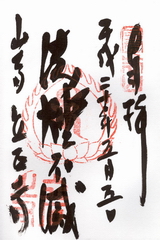 奉拝
平成二十年五月五日
法燈不滅
山寺 立石寺